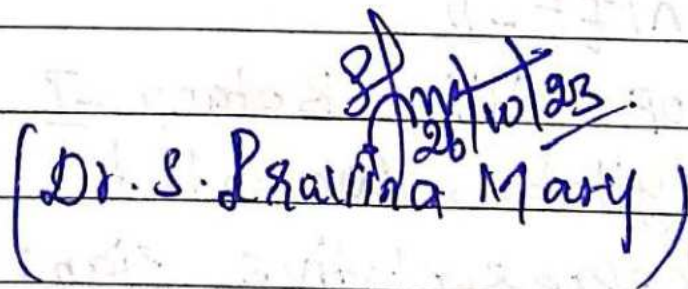 26/10/23.
(Dr. S. Pravina Mary)